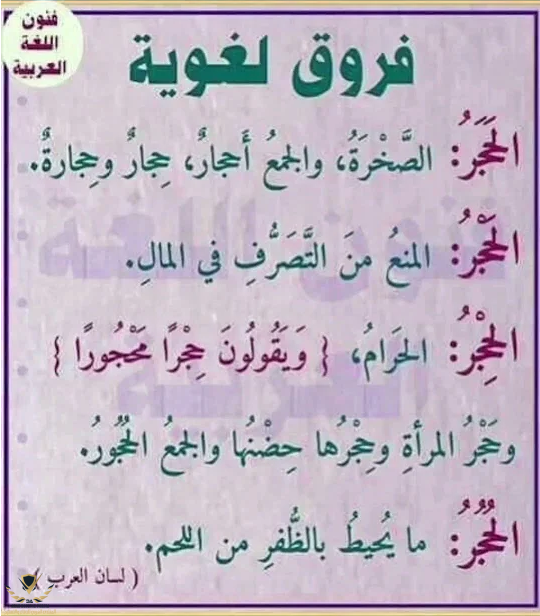 فنون
اللغة
العربية
فروق لغوية
الحَجَرُ: الصَّخْرَةُ، والجمعُ أَحجارٌ، حِجارٌ وحِجارةٌ.
الحَجْرُ: المنعُ منَ التَّصَرُّفِ في المالِ.
الحِجْرُ: الحَرامُ، { وَيَقُولُونَ حِجْرًا مَحْجُورًا }
وحَجْرُ المرأةِ وحِجْرُها حِضْنُها والجمعُ الحُجُورُ.
الحُجُرُ: ما يُحيطُ بالظُّفرِ من اللحم.
( لسان العرب )
فنون اللغة
العربية